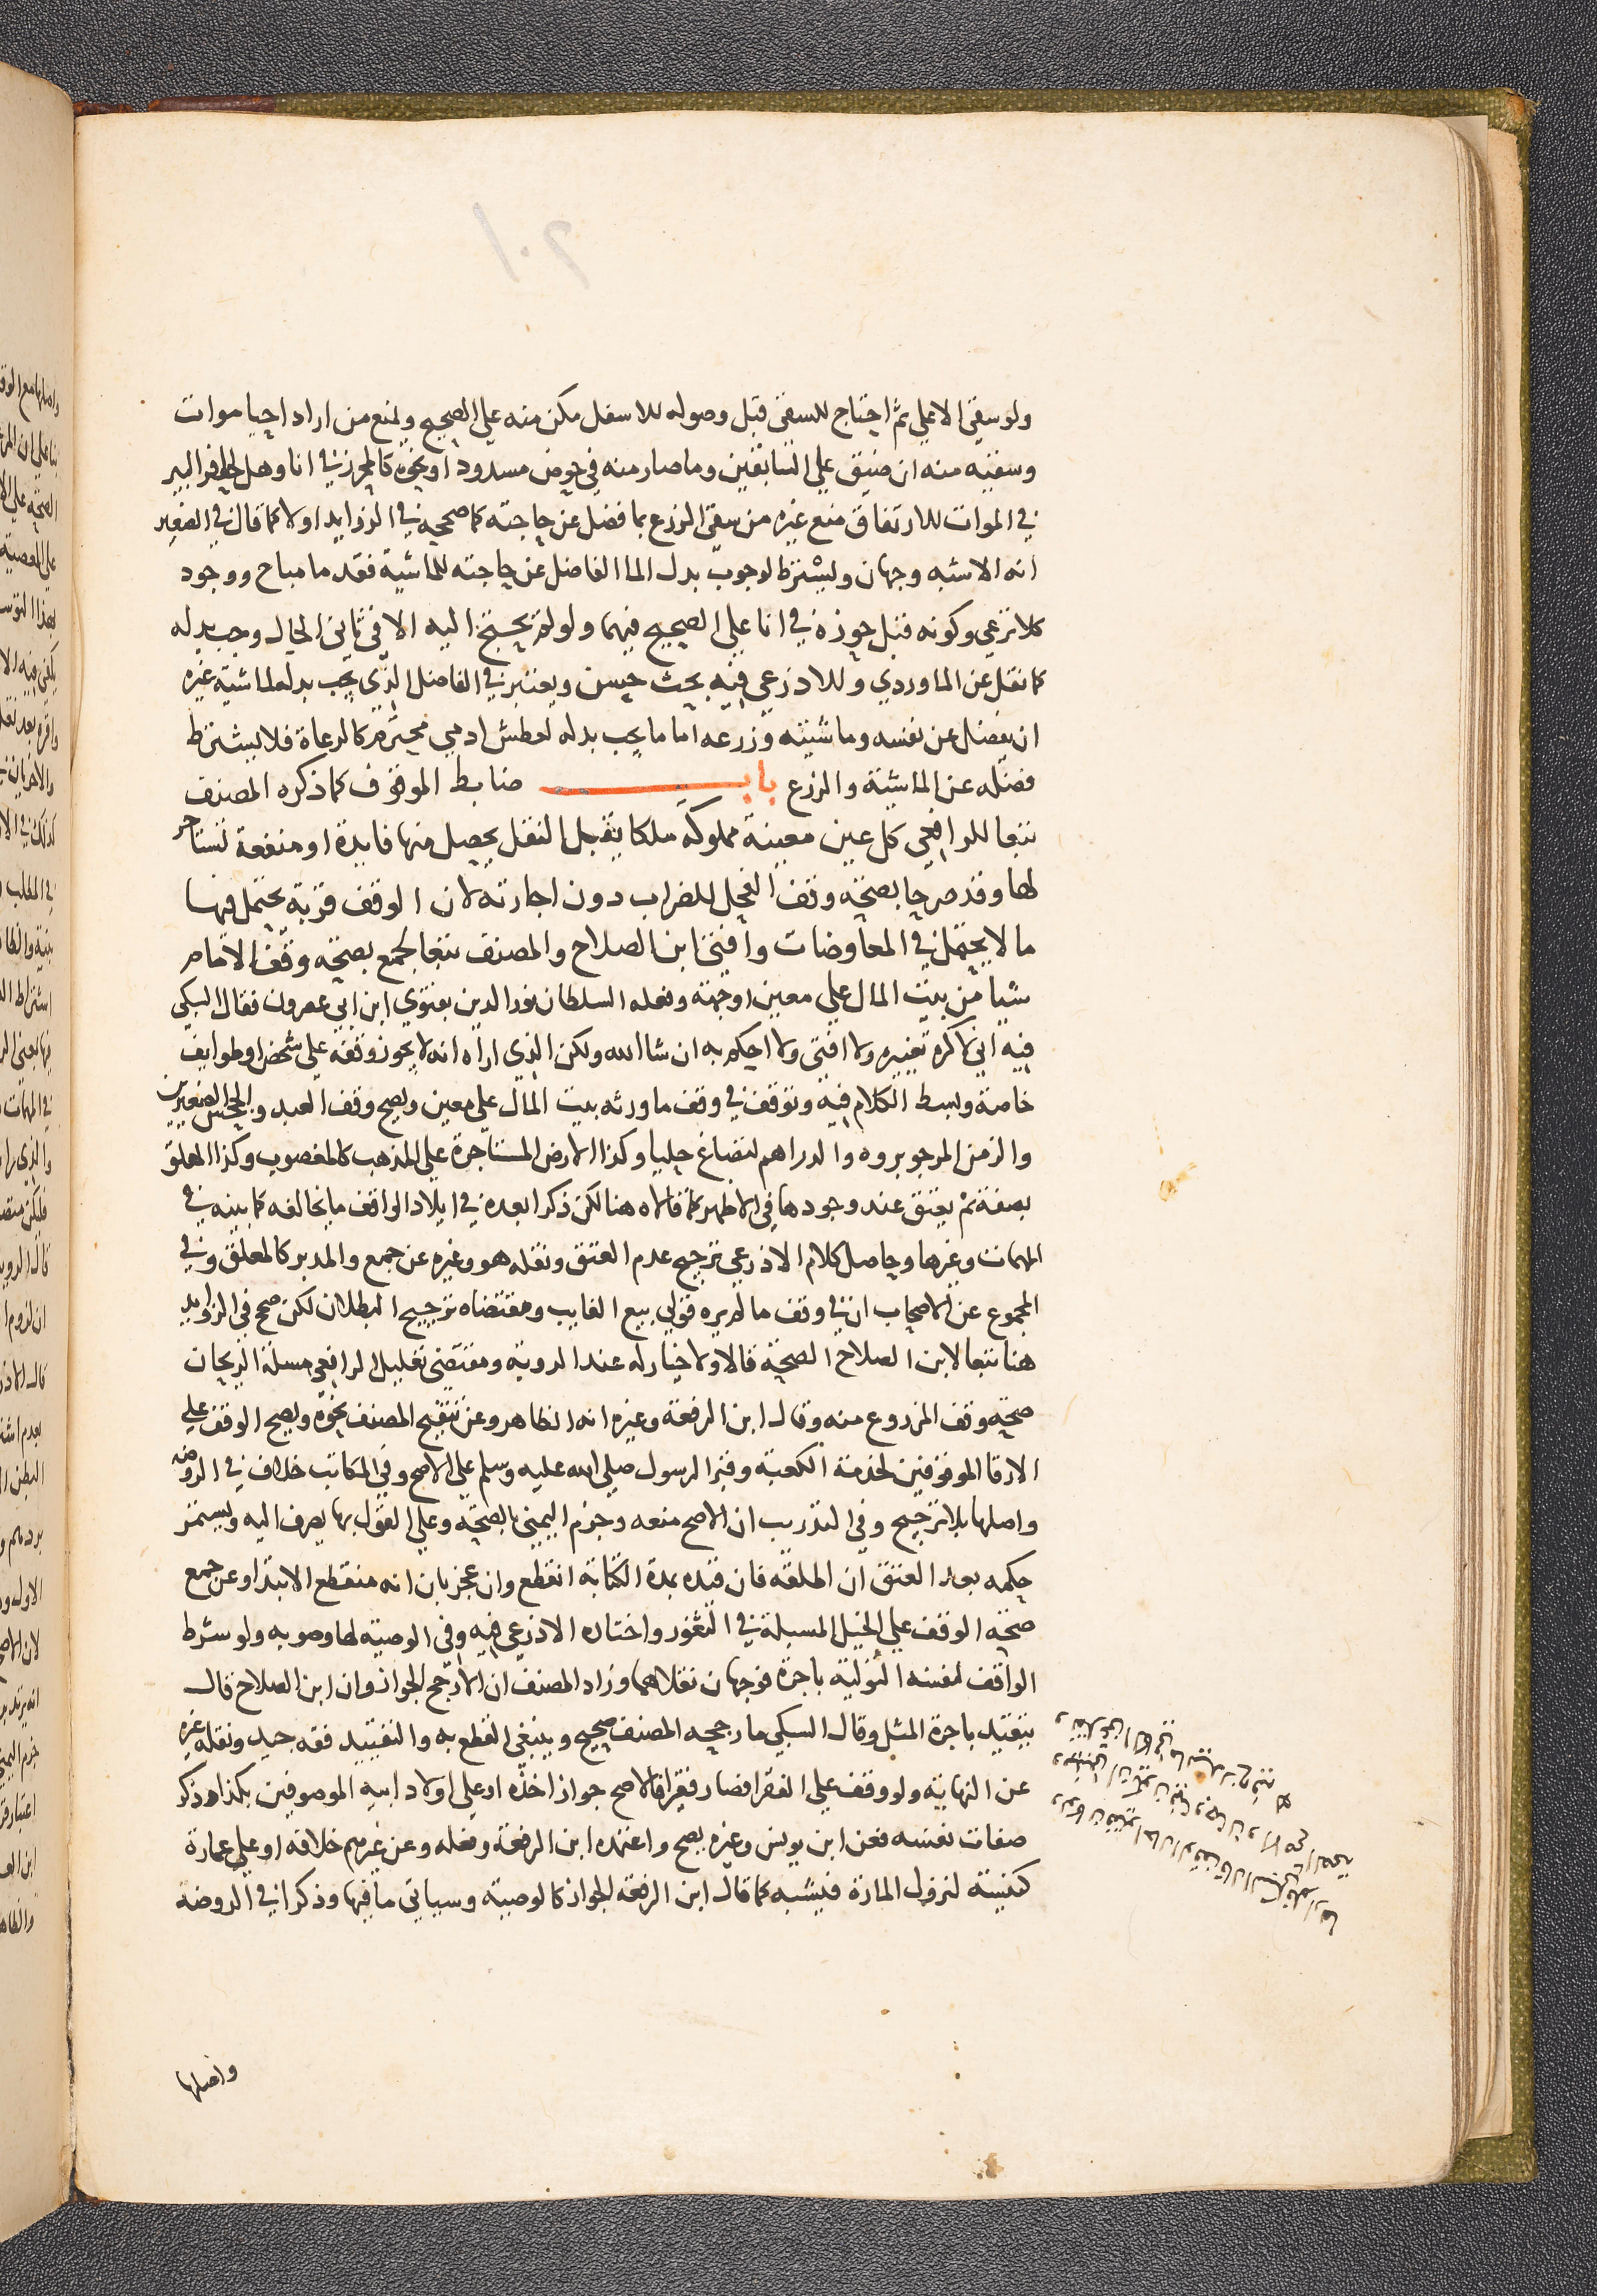 ولو سقى الاعلى ثم احتاج للسقى قبل وصوله للاسفل مكن منه على الصحيح ويمنع من اراد احيا موات
وسقيه منه ان ضيق على السابقين وما صار منه في حوض مسدود او نحوه كالمحرز في انا وهل لحافر البير
في الموات للارتفاق منع غيره من سقى الزرع بما فضل عن حاجته كما صححه في الزوايد اولا كما قال في الصغير
انه الاشبه وجهان ويشترط لوجوب بدل الما الفاضل عن حاجته للماشية فقد ما مباح ووجود
كلا ترعى وكونه قبل حوزه في انا على الصحيح فيهما ولو لم يحتج اليه الا في ثاني الحال وجب بدله
كما نقل عن الماوردي وللاذرعي فيه بحث حسن ويعتبر في الفاضل الذي يجب بدله لماشية غيره
ان يفضل عن نفسه وماشيته وزرعه اما ما يجب بدله لعطش ادمي محترم كالرعاة فلا يشترط
فضله عن الماشية والزرع باب ضابط الموقوف كما ذكره المصنف
تبعا للرافعي كل عين معينة مملوكة ملكا يقبل النقل يحصل منها فايدة او منفعة تستاجر
لها وقد صرحا بصحة وقف الفحل للضراب دون اجارته لان الوقف قربة يحتمل فيها
ما لا يحتمل في المعاوضات وافتى ابن الصلاح والمصنف تبعا لجمع بصحة وقف الامام
شيا من بيت المال على معين او جهة وفعله السلطان نور الدين بفتوى ابن ابي عصرون فقال السبكي
فيه اني لا اكره تغييره ولا افتى ولا احكم به ان شا الله ولكن الذي اراه انه لا يجوز وقفه على شخص او طوايف
خاصة وبسط الكلام فيه وتوقف في وقف ما ورثه بيت المال على معين ويصح وقف العبد والجحش الصغيرين
والزمن المرجو بروه والدراهم لتصاغ حليا وكذا الارض المستاجرة على المذهب كالمغصوب وكذا المعلق
بصفة ثم يعتق عند وجودها في الاظهر كما قالاه هنا لكن ذكرا بعده في ايلاد الواقف ما يخالفه كما بينه في
المهمات وغيرها وحاصل كلام الاذرعي ترجيح عدم العتق ونقله هو وغيره عن جمع والمدبر كالمعلق وفي
المجموع عن الاصحاب ان في وقف ما لم يره قولي بيع الغايب ومقتضاه ترجيح البطلان لكن صحح في الزوايد
هنا تبعا لابن الصلاح الصحة قالا ولا خيار له عند الروية ومقتضى تعليل الرافعي مسلة الريحان
صحة وقف المزروع منه وقال ابن الرفعة وغيره انه الظاهر وعن تنقيح المصنف نحوه ويصح الوقف على
الارقا الموقوفين لخدمة الكعبة وقبر الرسول صلى الله عليه وسلم على الاصح وفي المكاتب خلاف في الروضة
واصلها بلا ترجيح وفي التدريب ان الاصح منعه وجزم اليمني بالصحة وعلى القول بها يصرف اليه ويستمر
حكمه بعد العتق ان اطلقه فان قيده بمدة الكتابة انقطع وان عجز بان انه منقطع الابتدا وعن جمع
صحة الوقف على الخيل المسبلة في الثغور واختاره الاذرعي فيه وفي الوصية لها وصوبه ولو شرط
الواقف لنفسه التولية باجرة فوجهان نقلاهما وزاد المصنف ان الارجح الجواز وان ابن الصلاح قال
بتقيد باجرة المثل وقال السبكي ما رجحه المصنف صحيح وينبغي القطع به والتقييد فقه جيد ونقله غيره
عن النهاية ولو وقف على الفقرا فصار فقيرا فالاصح جواز اخذه او على اولاد ابيه الموصوفين بكذا وذكر
صفات نفسه فعن ابن يونس وغيره يصح واعتمده ابن الرفعة وفعله وعن غيرهم خلافه او على عمارة
كنيسة لنزول المارة فيشبه كما قال ابن الرفعة الجواز كالوصية وسياتي ما فيها وذكرا في الروضة
واصلها